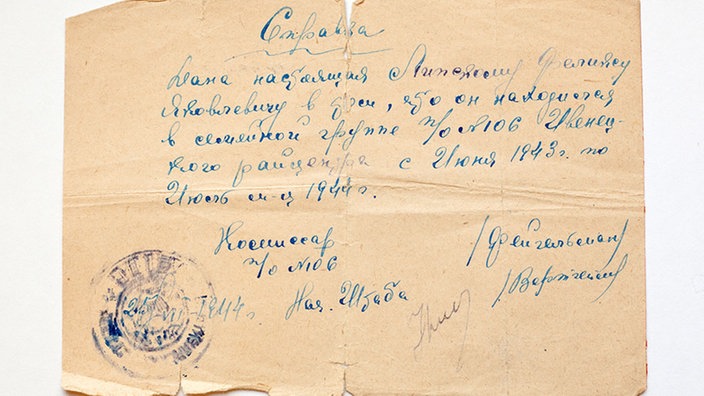 Справка
Дана настоящая Липскому Феликсу
Яковлевичу в том, что он находился
в семейной группе п/о №106 Ивенец-
кого райцентра с Июня 1943г. по
Июль м-ц 1944г.
Комиссар /Фейгельман/
п/о №106
Нач. Штаба /Вертгейм/
1944г.